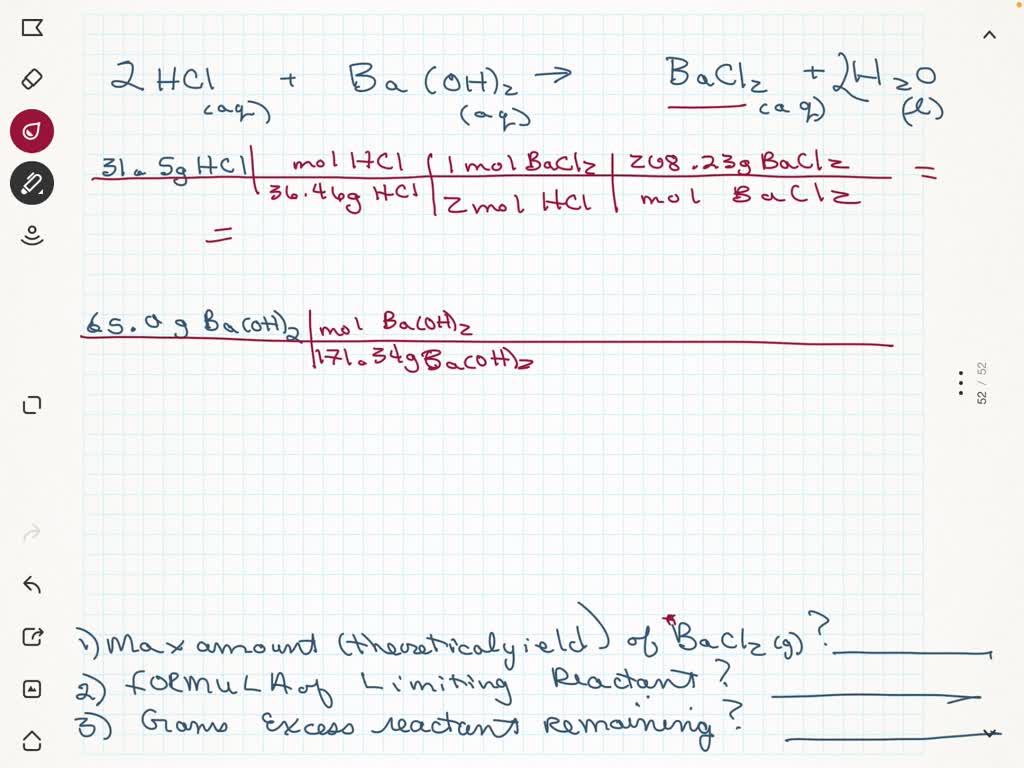 2 HCl + Ba (OH)2 → BaCl2 + 2H2O
(aq) (aq) (aq) (l)
31.5g HCl | mol HCl | 1 mol BaCl2 | 208.23g BaCl2 =
36.46g HCl | 2 mol HCl | mol BaCl2
=
65.0 g Ba(OH)2 | mol Ba(OH)2
171.34g Ba(OH)2
52 / 52
1) Max amount (theoretical yield) of BaCl2 (g)?
2) FORMULA of Limiting Reactant?
3) Grams Excess reactant Remaining?